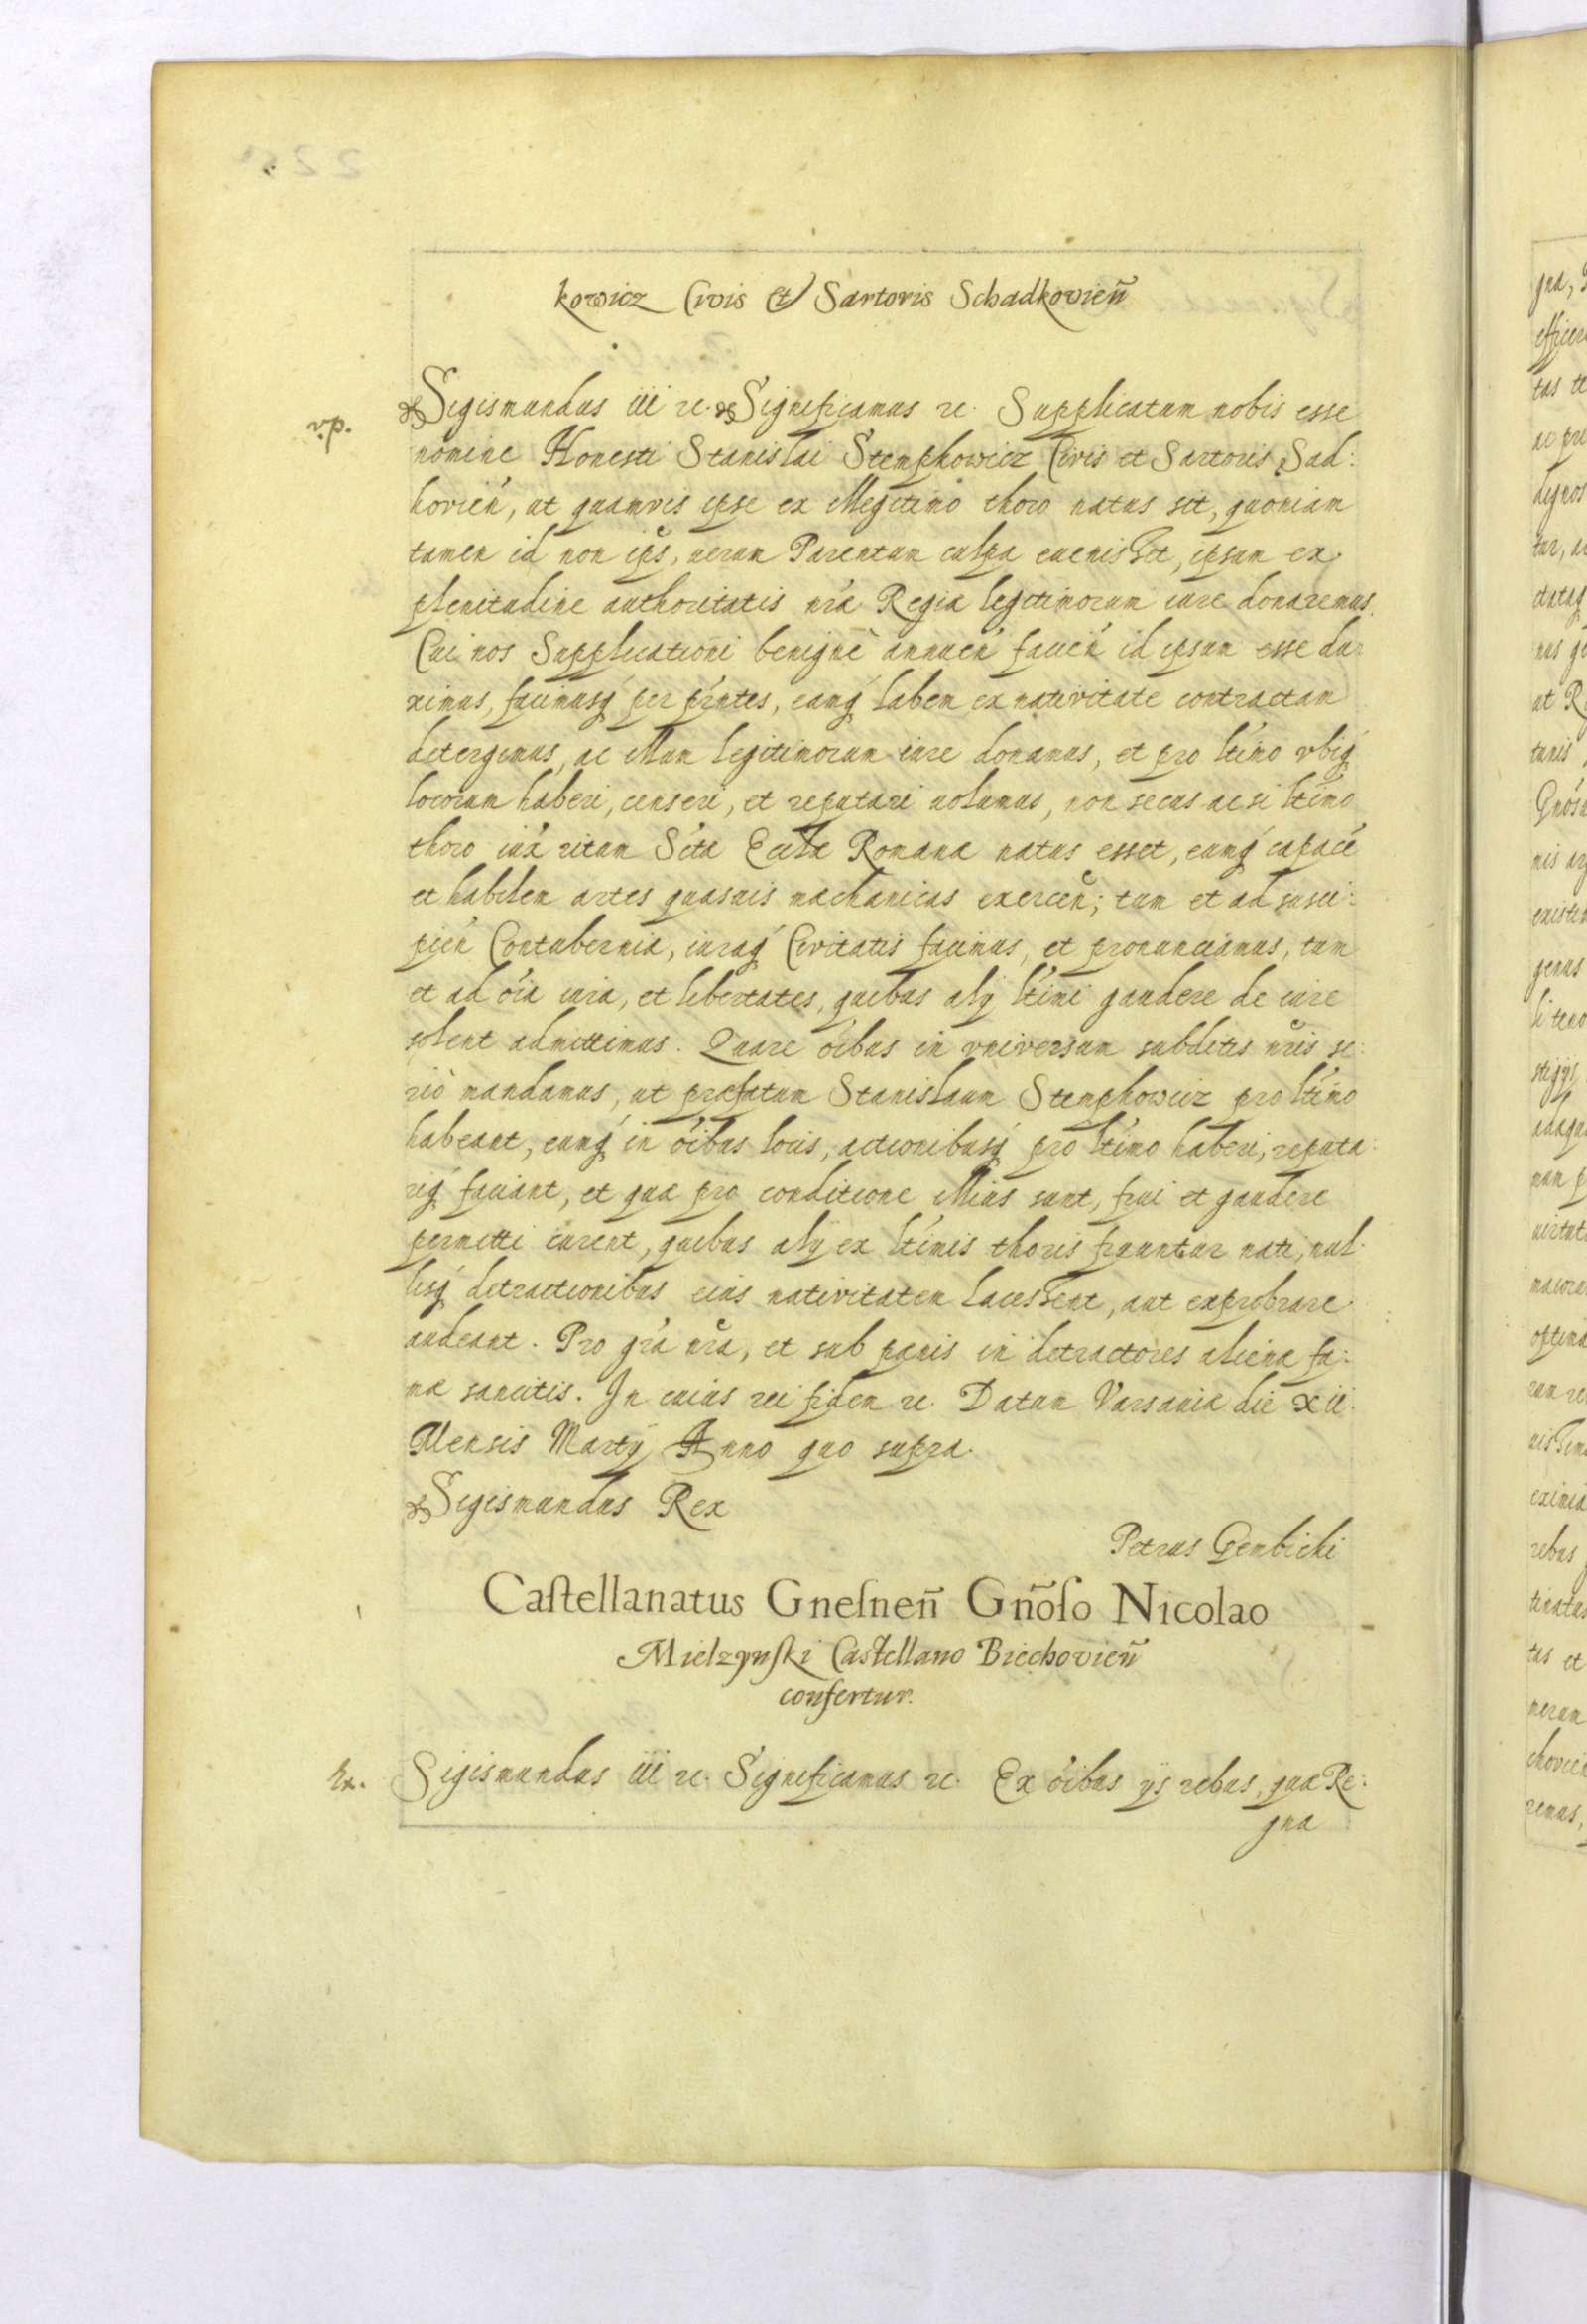 kowicz Civis et Sartoris Schadkovieñ
v.p.
Sigismundus iii rc. Significamus rc. Supplicatum nobis esse
nomine Honesti Stanislai Stempkowicz Civis et Sartoris Sad:
kovień, ut quamvis ipse ex illegitimo thoro natus sit, quoniam
tamen id non ips̃, uerum Parentum culpa euenisset, ipsum ex
plenitudine authoritatis nr̃a Regia legitimorum iure donaremus.
Cui nos Supplicationi benignè annueń facień id ipsum esse du:
ximus, facimusq́ per pr̃ntes, eamq́ labem ex nativitate contractam
detergimus, ac illum legitimorum iure donamus, et pro ltimo vbiq́
locorum haberi, censeri, et reputari uolumus, non secus ac si ltimo
thoro iuxa ritum Scta Eccla Romana natus esset, eumq́ capacé
et habilem artes quasuis machanicas exerceñ; tum et ad susci:
pień Contubernia, iuraq́ Civitatis facimus, et pronunciamus, tum
et ad oĩa iura, et libertates, quibus alij ltimi gaudere de iure
solent admittimus. Quare oĩbus in vniversum subditis nr̃is se:
riò mandamus, ut præfatum Stanislaum Stempkowicz pro ltimo
habeant, eumq́ in oĩbus locis, actionibusq́ pro ltimo haberi, reputa:
riq́ faciant, et qua pro conditione illius sunt, frui et gaudere
permitti curent, quibus alij ex ltimis thoris fruuntur nati, nul:
lisq́ detractionibus eius nativitatem lacessent, aut exprobrare
audeant. Pro gr̃a nr̃a, et sub pænis in detractores aliena fa:
ma sancitis. In cuius rei fidem rc. Datum Varsauia die xii
Mensis Martij Anno quo supra.
Sigismundus Rex
Petrus Gembicki
Castellanatus Gnesneñ Gñoso Nicolao
Mielzynski Castellano Biechovieñ
confertur.
Ex.
Sigismundus iii rc. Significamus rc. Ex oĩbus ijs rebus, qua Re:
gna